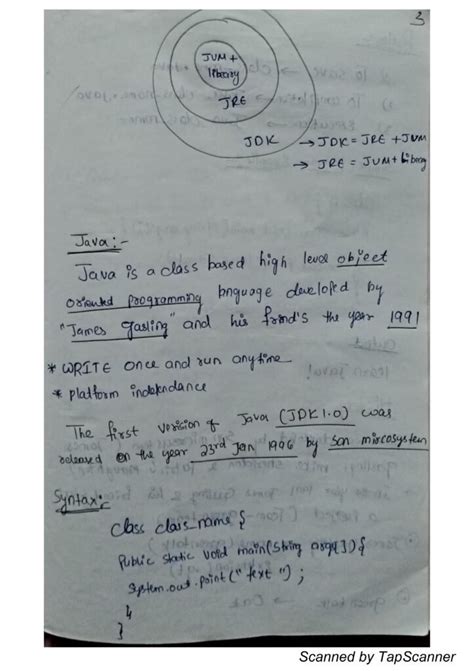 3
JVM +
library
JRE
JDK → JDK = JRE + JVM
→ JRE = JVM + library
Java :-
Java is a class based high level object
oriented programming language developed by
"James gasling" and his frind's the year 1991
* WRITE once and run anytime
* platform independance
The first version of Java (JDK 1.0) was
released on the year 23rd Jan 1996 by son miscosystem
Syntax:
class class_name {
Public static void main(String args[]) {
System.out.point("text");
}
}
Scanned by TapScanner